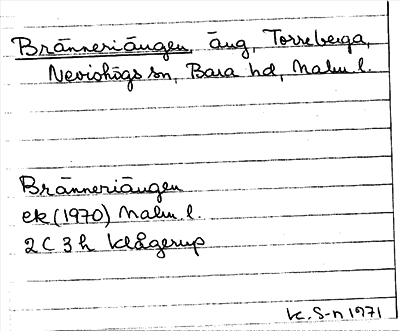 Bränneriängen, äng, Torreberga,
Nevishögs sn, Bara hd, Malm.l.
Bränneriängen
ek (1970) Malm.l.
2 C 3 h Klågerup
K. S-n 1971